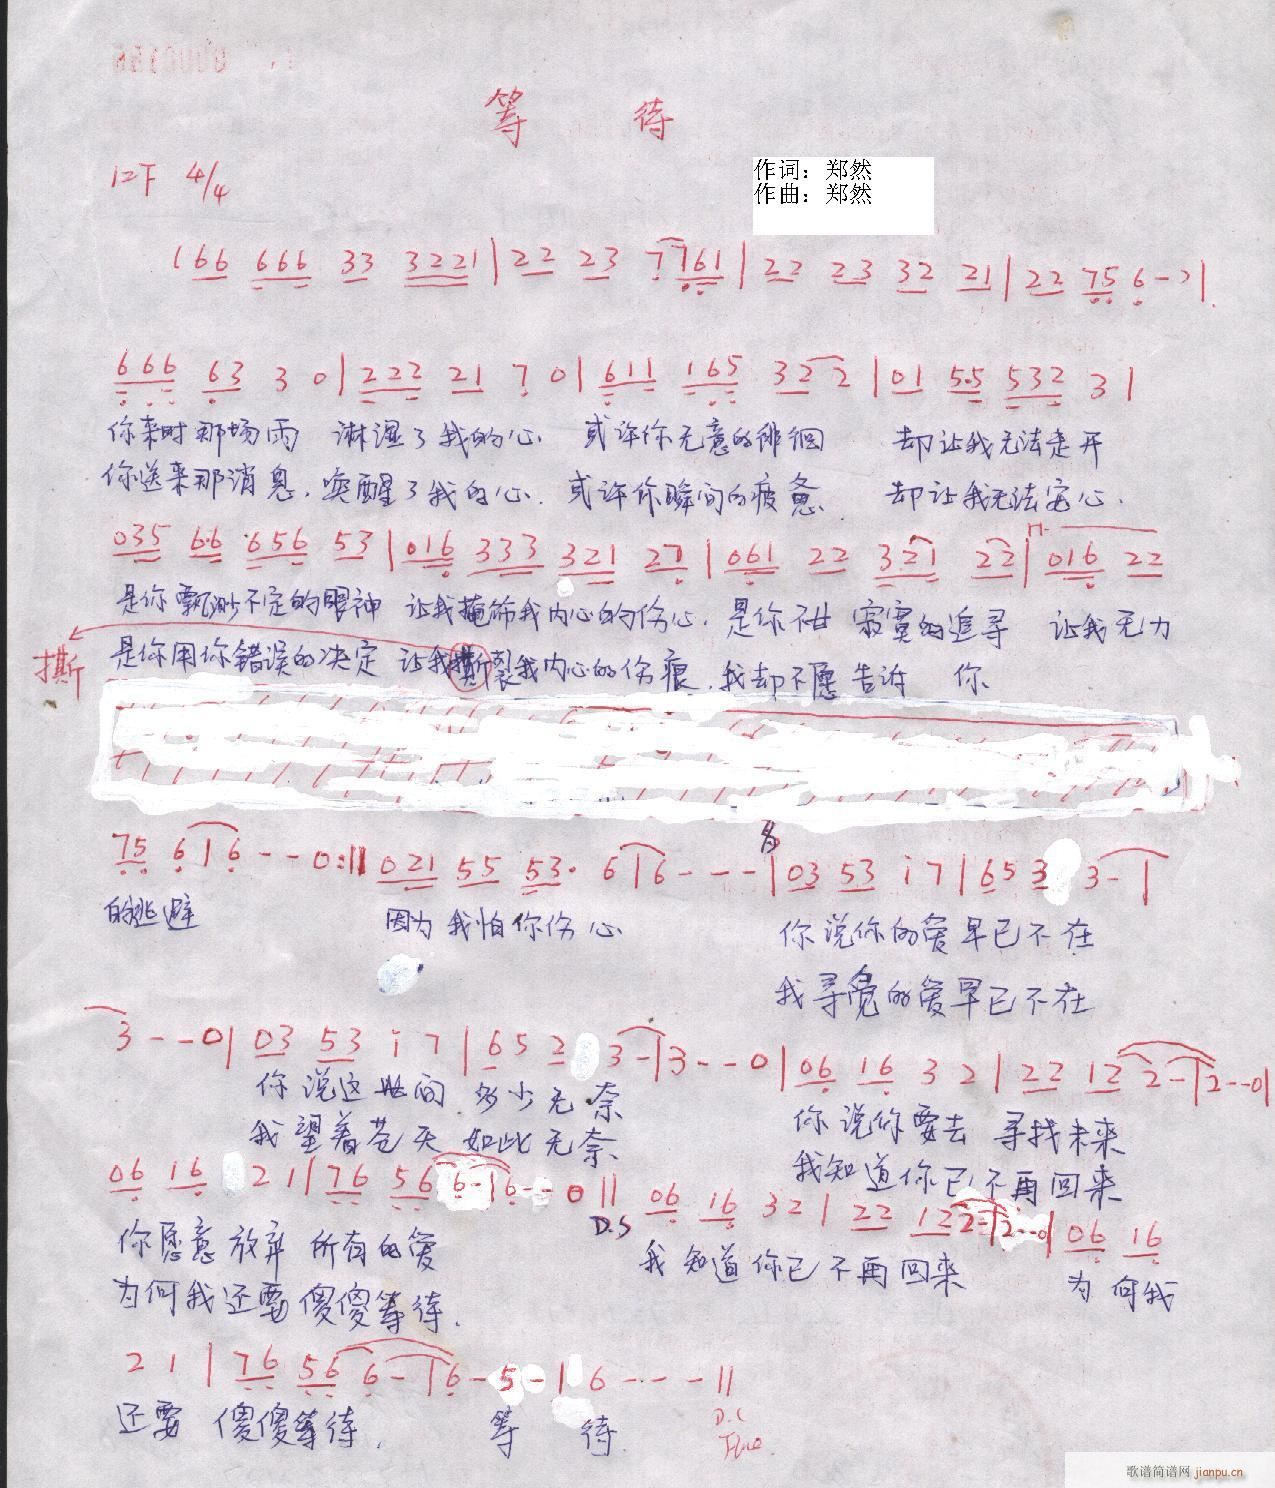 等 待
1=F 4/4
作词：郑然
作曲：郑然
166 666 33 3221 | 22 23 7 761 | 22 23 32 21 | 22 75 6 - - |
666 63 3 0 | 222 21 7 0 | 611 165 32 2 | 01 5·5 532 3 |
你来时那场雨 淋湿了我的心 或许你无意的徘徊 却让我无法走开
你送来那消息. 唤醒了我的心. 或许你瞬间的疲惫. 却让我无法安心.
035 6·6 656 53 | 016 333 321 27 | 061 22 321 22 | 016 22
是你飘渺不定的眼神 让我掩饰我内心的伤心. 是你不甘 寂寞的追寻 让我无力
撕
是你用你错误的决定 让我撕裂我内心的伤痕. 我却不愿告诉 你
75 6 | 6 - - 0 :|| 021 55 53· 6 | 6 - - - | 03 53 i 7 | 653 3 - |
的逃避 因为我怕你伤心 你说你的爱早已不在
我寻觅的爱早已不在
3 - - 0 | 03 53 i 7 | 652 3 - | 3 - - 0 | 06 16 3 2 | 22 12 2 - | 2 - - 0 |
你说这世间 多少无奈 你说你要去 寻找未来
我望着苍天 如此无奈 我知道你已不再回来
06 16 2 1 | 76 56 6 - | 6 - - 0 || D.S 06 16 3 2 | 22 12 2 - | 2 - - 0 | 06 16
你愿意放弃 所有的爱 我知道你已不再回来 为何我
为何我还要傻傻等待.
2 1 | 76 56 6 - | 6 - 5 - | 6 - - - ||
还要 傻傻等待. 等 待 D.C
歌谱简谱网 jianpu.cn